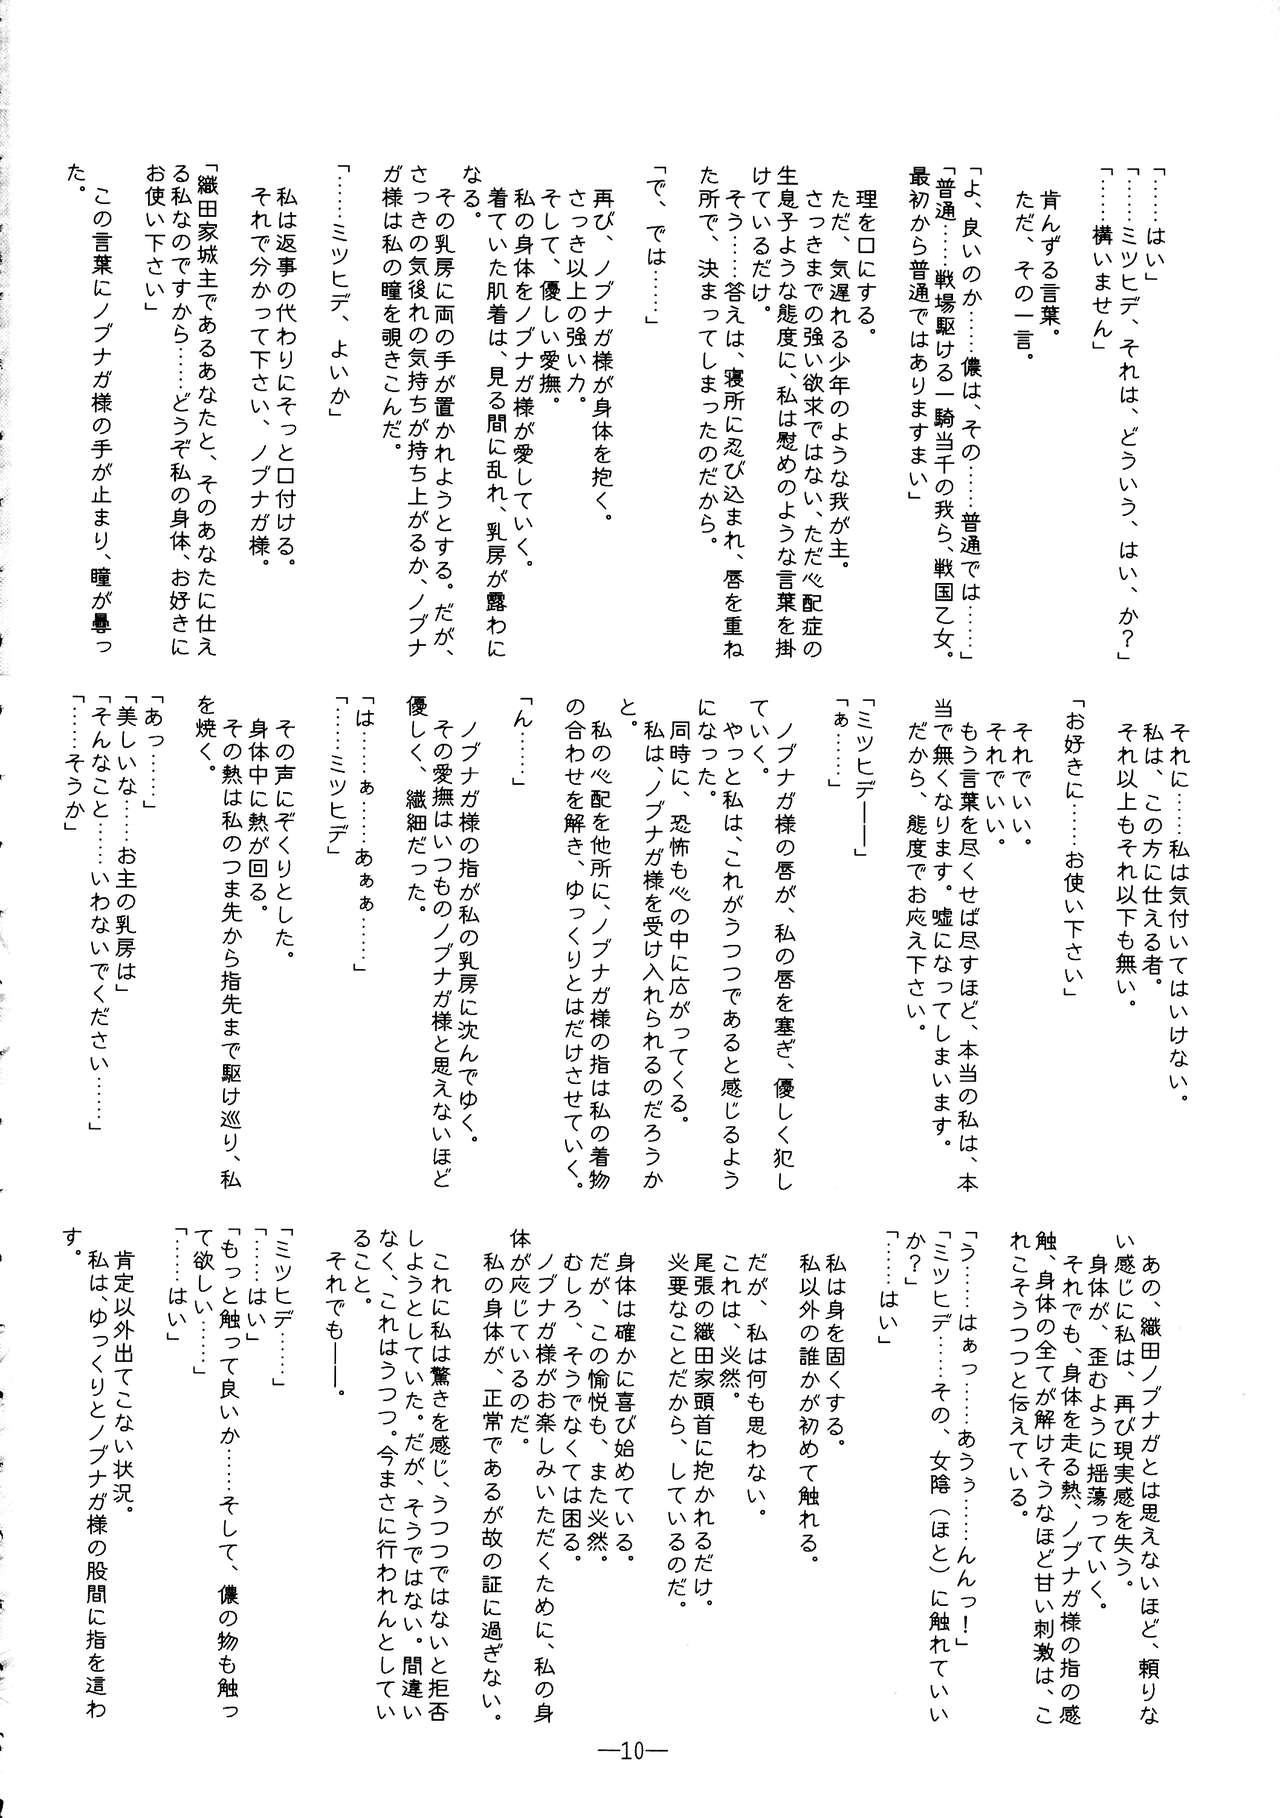 「……はい」
「……ミツヒデ、それは、どういう、はい、か？」
「……構いません」
肯んずる言葉。
ただ、その一言。
「よ、良いのか……儂は、その……普通では……」
「普通……戦場駆ける一騎当千の我ら、戦国乙女。
最初から普通ではありますまい」
理を口にする。
ただ、気遅れる少年のような我が主。
さっきまでの強い欲求ではない、ただ心配症の
生息子ような態度に、私は慰めのような言葉を掛
けているだけ。
そう……答えは、寝所に忍び込まれ、唇を重ね
た所で、決まってしまったのだから。
「で、では……」
再び、ノブナガ様が身体を抱く。
さっき以上の強い力。
そして、優しい愛撫。
私の身体をノブナガ様が愛していく。
着ていた肌着は、見る間に乱れ、乳房が露わに
なる。
その乳房に両の手が置かれようとする。だが、
さっきの気後れの気持ちが持ち上がるか、ノブナ
ガ様は私の瞳を覗きこんだ。
「……ミツヒデ、よいか」
私は返事の代わりにそっと口付ける。
それで分かって下さい、ノブナガ様。
「織田家城主であるあなたと、そのあなたに仕え
る私なのですから……どうぞ私の身体、お好きに
お使い下さい」
この言葉にノブナガ様の手が止まり、瞳が曇っ
た。
それに……私は気付いてはいけない。
私は、この方に仕える者。
それ以上もそれ以下も無い。
「お好きに……お使い下さい」
それでいい。
それでいい。
もう言葉を尽くせば尽すほど、本当の私は、本
当で無くなります。嘘になってしまいます。
だから、態度でお応え下さい。
「ミツヒデ――」
「ぁ……」
ノブナガ様の唇が、私の唇を塞ぎ、優しく犯し
ていく。
やっと私は、これがうつつであると感じるよう
になった。
同時に、恐怖も心の中に広がってくる。
私は、ノブナガ様を受け入れられるのだろうか
と。
私の心配を他所に、ノブナガ様の指は私の着物
の合わせを解き、ゆっくりとはだけさせていく。
「ん……」
ノブナガ様の指が私の乳房に沈んでゆく。
その愛撫はいつものノブナガ様と思えないほど
優しく、繊細だった。
「は……ぁ……あぁぁ……」
「……ミツヒデ」
その声にぞくりとした。
身体中に熱が回る。
その熱は私のつま先から指先まで駆け巡り、私
を焼く。
「あっ……」
「美しいな……お主の乳房は」
「そんなこと……いわないでください……」
「……そうか」
あの、織田ノブナガとは思えないほど、頼りな
い感じに私は、再び現実感を失う。
身体が、歪むように揺蕩っていく。
それでも、身体を走る熱、ノブナガ様の指の感
触、身体の全てが解けそうなほど甘い刺激は、こ
れこそうつつと伝えている。
「う……はぁっ……あうぅ……んんっ！」
「ミツヒデ……その、女陰（ほと）に触れていい
か？」
「……はい」
私は身を固くする。
私以外の誰かが初めて触れる。
だが、私は何も思わない。
これは、必然。
尾張の織田家頭首に抱かれるだけ。
必要なことだから、しているのだ。
身体は確かに喜び始めている。
だが、この愉悦も、また必然。
むしろ、そうでなくては困る。
ノブナガ様がお楽しみいただくために、私の身
体が応じているのだ。
私の身体が、正常であるが故の証に過ぎない。
これに私は驚きを感じ、うつつではないと拒否
しようとしていた。だが、そうではない。間違い
なく、これはうつつ。今まさに行われんとしてい
ること。
それでも――。
「ミツヒデ……」
「……はい」
「もっと触って良いか……そして、儂の物も触っ
て欲しい……」
「……はい」
肯定以外出てこない状況。
私は、ゆっくりとノブナガ様の股間に指を這わ
す。
—10—